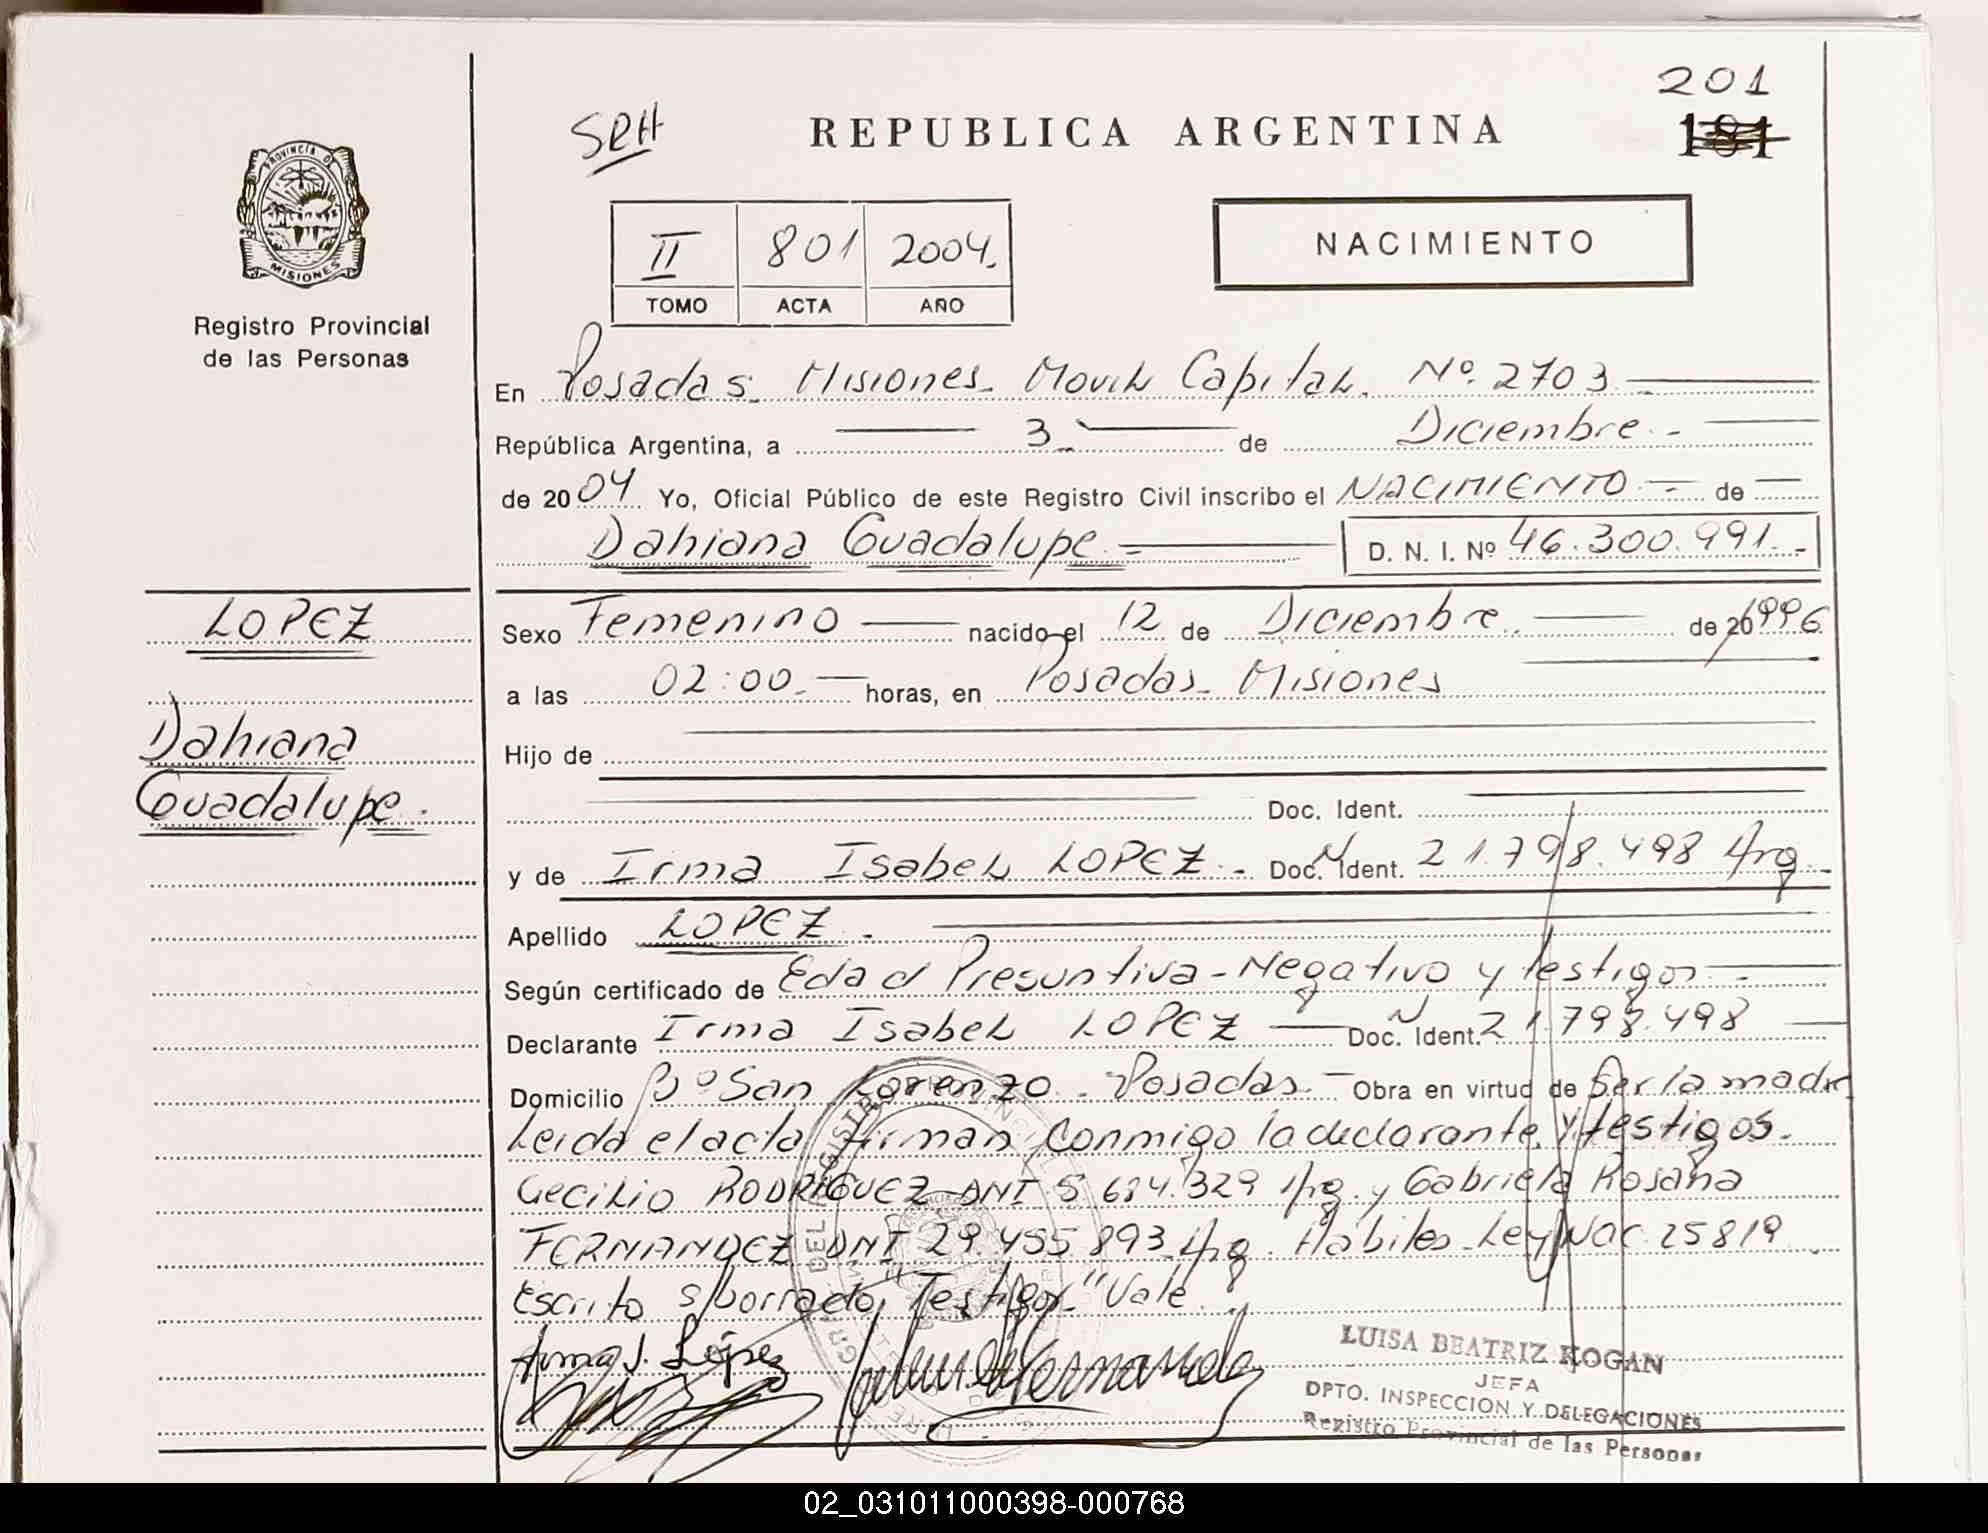 201
181
SRH
REPUBLICA ARGENTINA
PROVINCIA DE
MISIONES
Registro Provincial
de las Personas
II 801 2004.
TOMO ACTA AÑO
NACIMIENTO
En Posadas. Misiones. Movil Capital. Nº. 2703
República Argentina, a 3 de Diciembre.-
de 2004 Yo, Oficial Público de este Registro Civil inscribo el NACIMIENTO.- de
Dahiana Guadalupe.- D. N. I. Nº 46.300.991.-
LOPEZ
Dahiana
Guadalupe.
Sexo Femenino nacido el 12 de Diciembre. de 20 1996
a las 02:00.- horas, en Posadas. Misiones
Hijo de
Doc. Ident.
y de Irma Isabel LOPEZ.- Doc. Ident. 21.798.498 Arg.
Apellido LOPEZ.
Según certificado de Edad Presuntiva - Negativo y testigos
Declarante Irma Isabel LOPEZ Doc. Ident. 21.798.498
Domicilio Bº San Lorenzo. Posadas.- Obra en virtud de Ser la madre
Leida el acta, firman conmigo la declarante, y testigos.
Cecilio RODRIGUEZ DNI 5.684.329 Arg. y Gabriela Rosana
FERNANDEZ DNI 29.455.893 Arg. Hábiles. Ley Nac. 25819
Escrito s/borrado, Testigos "Vale.
Irma I. López
LUISA BEATRIZ KOGAN
JEFA
DPTO. INSPECCION Y DELEGACIONES
Registro Provincial de las Personas
02_031011000398-000768